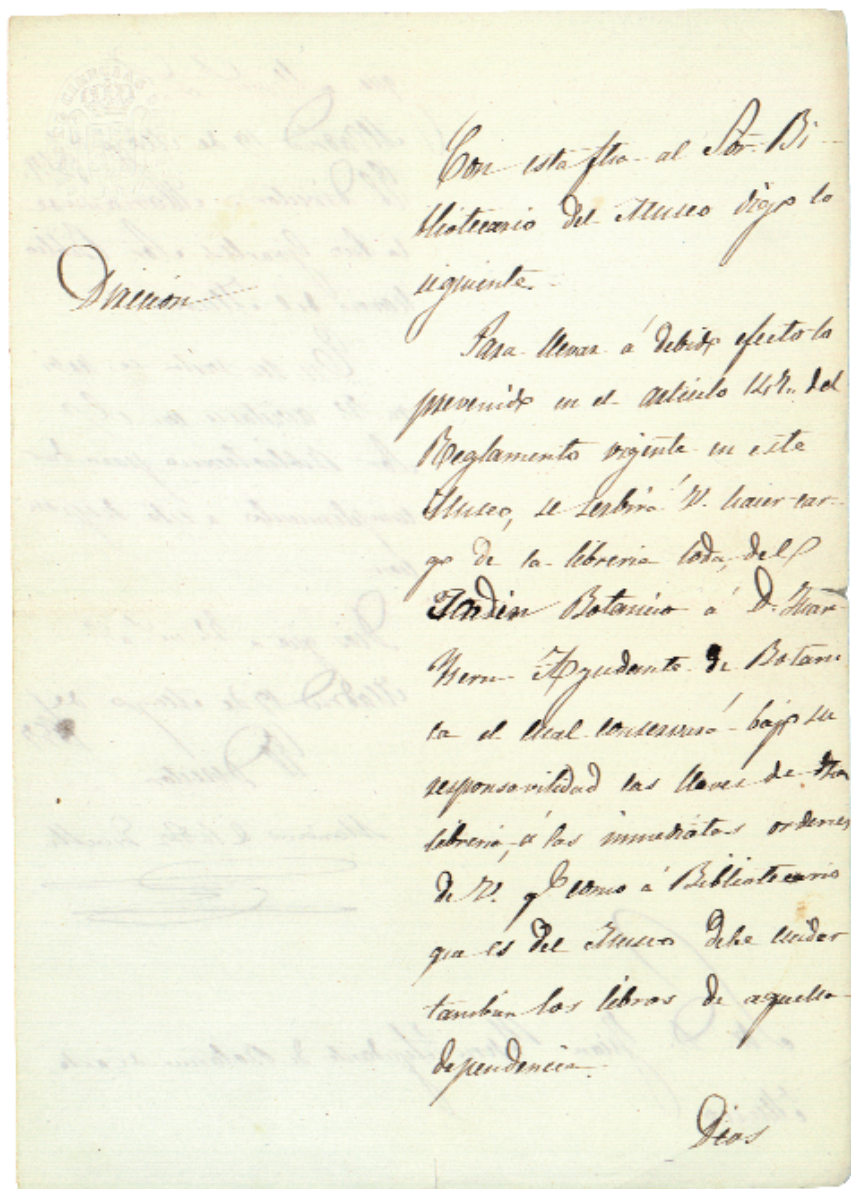 Dirección
Con esta fha al Sor. Bi-
bliotecario del Museo digo lo
siguiente.
Para llevar á debido efecto lo
prevenido en el articulo 147. del
Reglamento vigente en este
Museo, se serbirá V. hacer car-
go de la libreria toda, del
Jardin Botanico á D. Juan
Isern Ayudante de Botani
ca el cual conservará bajo su
responsavilidad las llaves de dha
libreria, á las inmediatas ordenes
de V. qe como á Bibliotecario
que es del Museo debe cuidar
tambien los libros de aquella
dependencia.
Dios